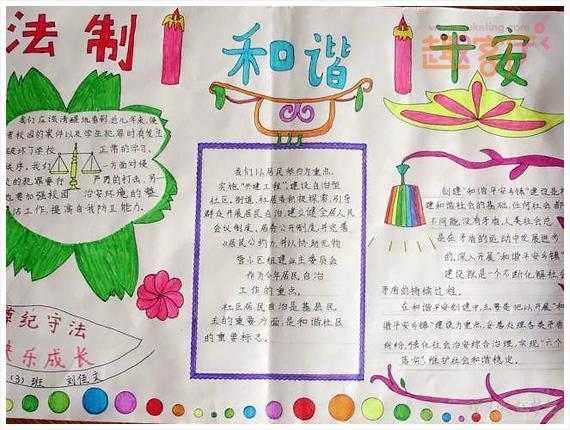 法制
和谐
平安
我们应该清醒地看到近几年来,侵
害校园的案件以及学生犯罪时有发生
破坏了学校 正常的学习、
秩序。我们 一方面对侵
严厉的打击,另一
加强校园 治安环境的整
治工作,提高自我防卫能力。
遵纪守法
快乐成长
(3)班 刘佳文
我们以居民参与为重点。
实施“共建工程”,建设自治型
社区,街道、社居委积极探索,引导
群众开展居民自治,建立健全居人民
会议制度、居务公开制度,并完善
以居民公约为,并以协助元物
管小区组建业主委员会
作为今年居民自治
工作的重点。
社区居民自治是基层民
主的重要方面,是和谐社区
的重要标志。
创建“和谐平安乡镇”建设是构
建和谐社会的基础,任何社会都
不可能没有矛盾,人类社会总
是在矛盾的运动中发展进步
的,深入开展“和谐平安乡镇”
建设就是一个不断化解社会
矛盾的持续过程。
在和谐平安创建中,主要是把以开展“和
谐平安乡镇”建设为重点,妥善处理各类矛盾
纠纷,强化社会治安综合治理,实现“六个
落实”,维护社会和谐稳定。